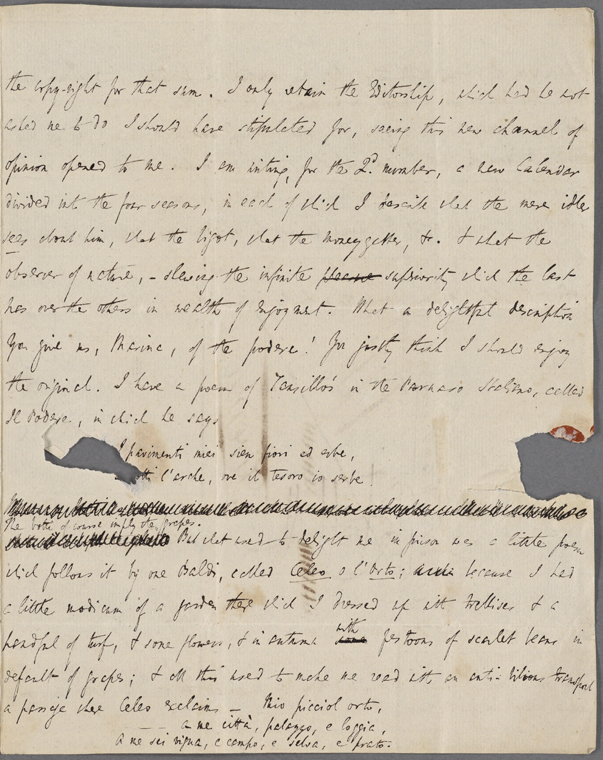 the copy-right for that sum. I only retain the Editorship, which had he not
asked me to do I should have stipulated for, seeing this new channel of
opinion opened to me. I am writing, for the 2.d number, a new Calendar
divided into the four seasons, in each of which I describe what the mere idler
sees about him, what the bigot, what the money getter, &c. & what the
observer of nature, – shewing the infinite superiority which the last
has over the others in wealth of enjoyment. What a delightful description
you give us, Marina, of the podere! You justly think I should enjoy
the original. I have a poem of Tansillo's in the Parnaso Italiano, called
Il Podere, in which he says
I pavimenti miei sien fiori ed erbe,
l'arche, ove il tesoro io serbe!
The botti of course imply the grapes.
But what used to delight me in prison was a little poem
which follows it by one Baldi, called Celeo o l'Orto; because I had
a little modicum of a garden there which I dressed up with trellises & a
handful of turf, & some flowers, & in autumn with festoons of scarlet beans in
default of grapes; & all this used to make me read with an anti-bilious transport
a passage where Celeo exclaims – Mio picciol orto,
– – a me città, palazzo, e loggia,
A me sei vigna, e campo, e selva, e prato.